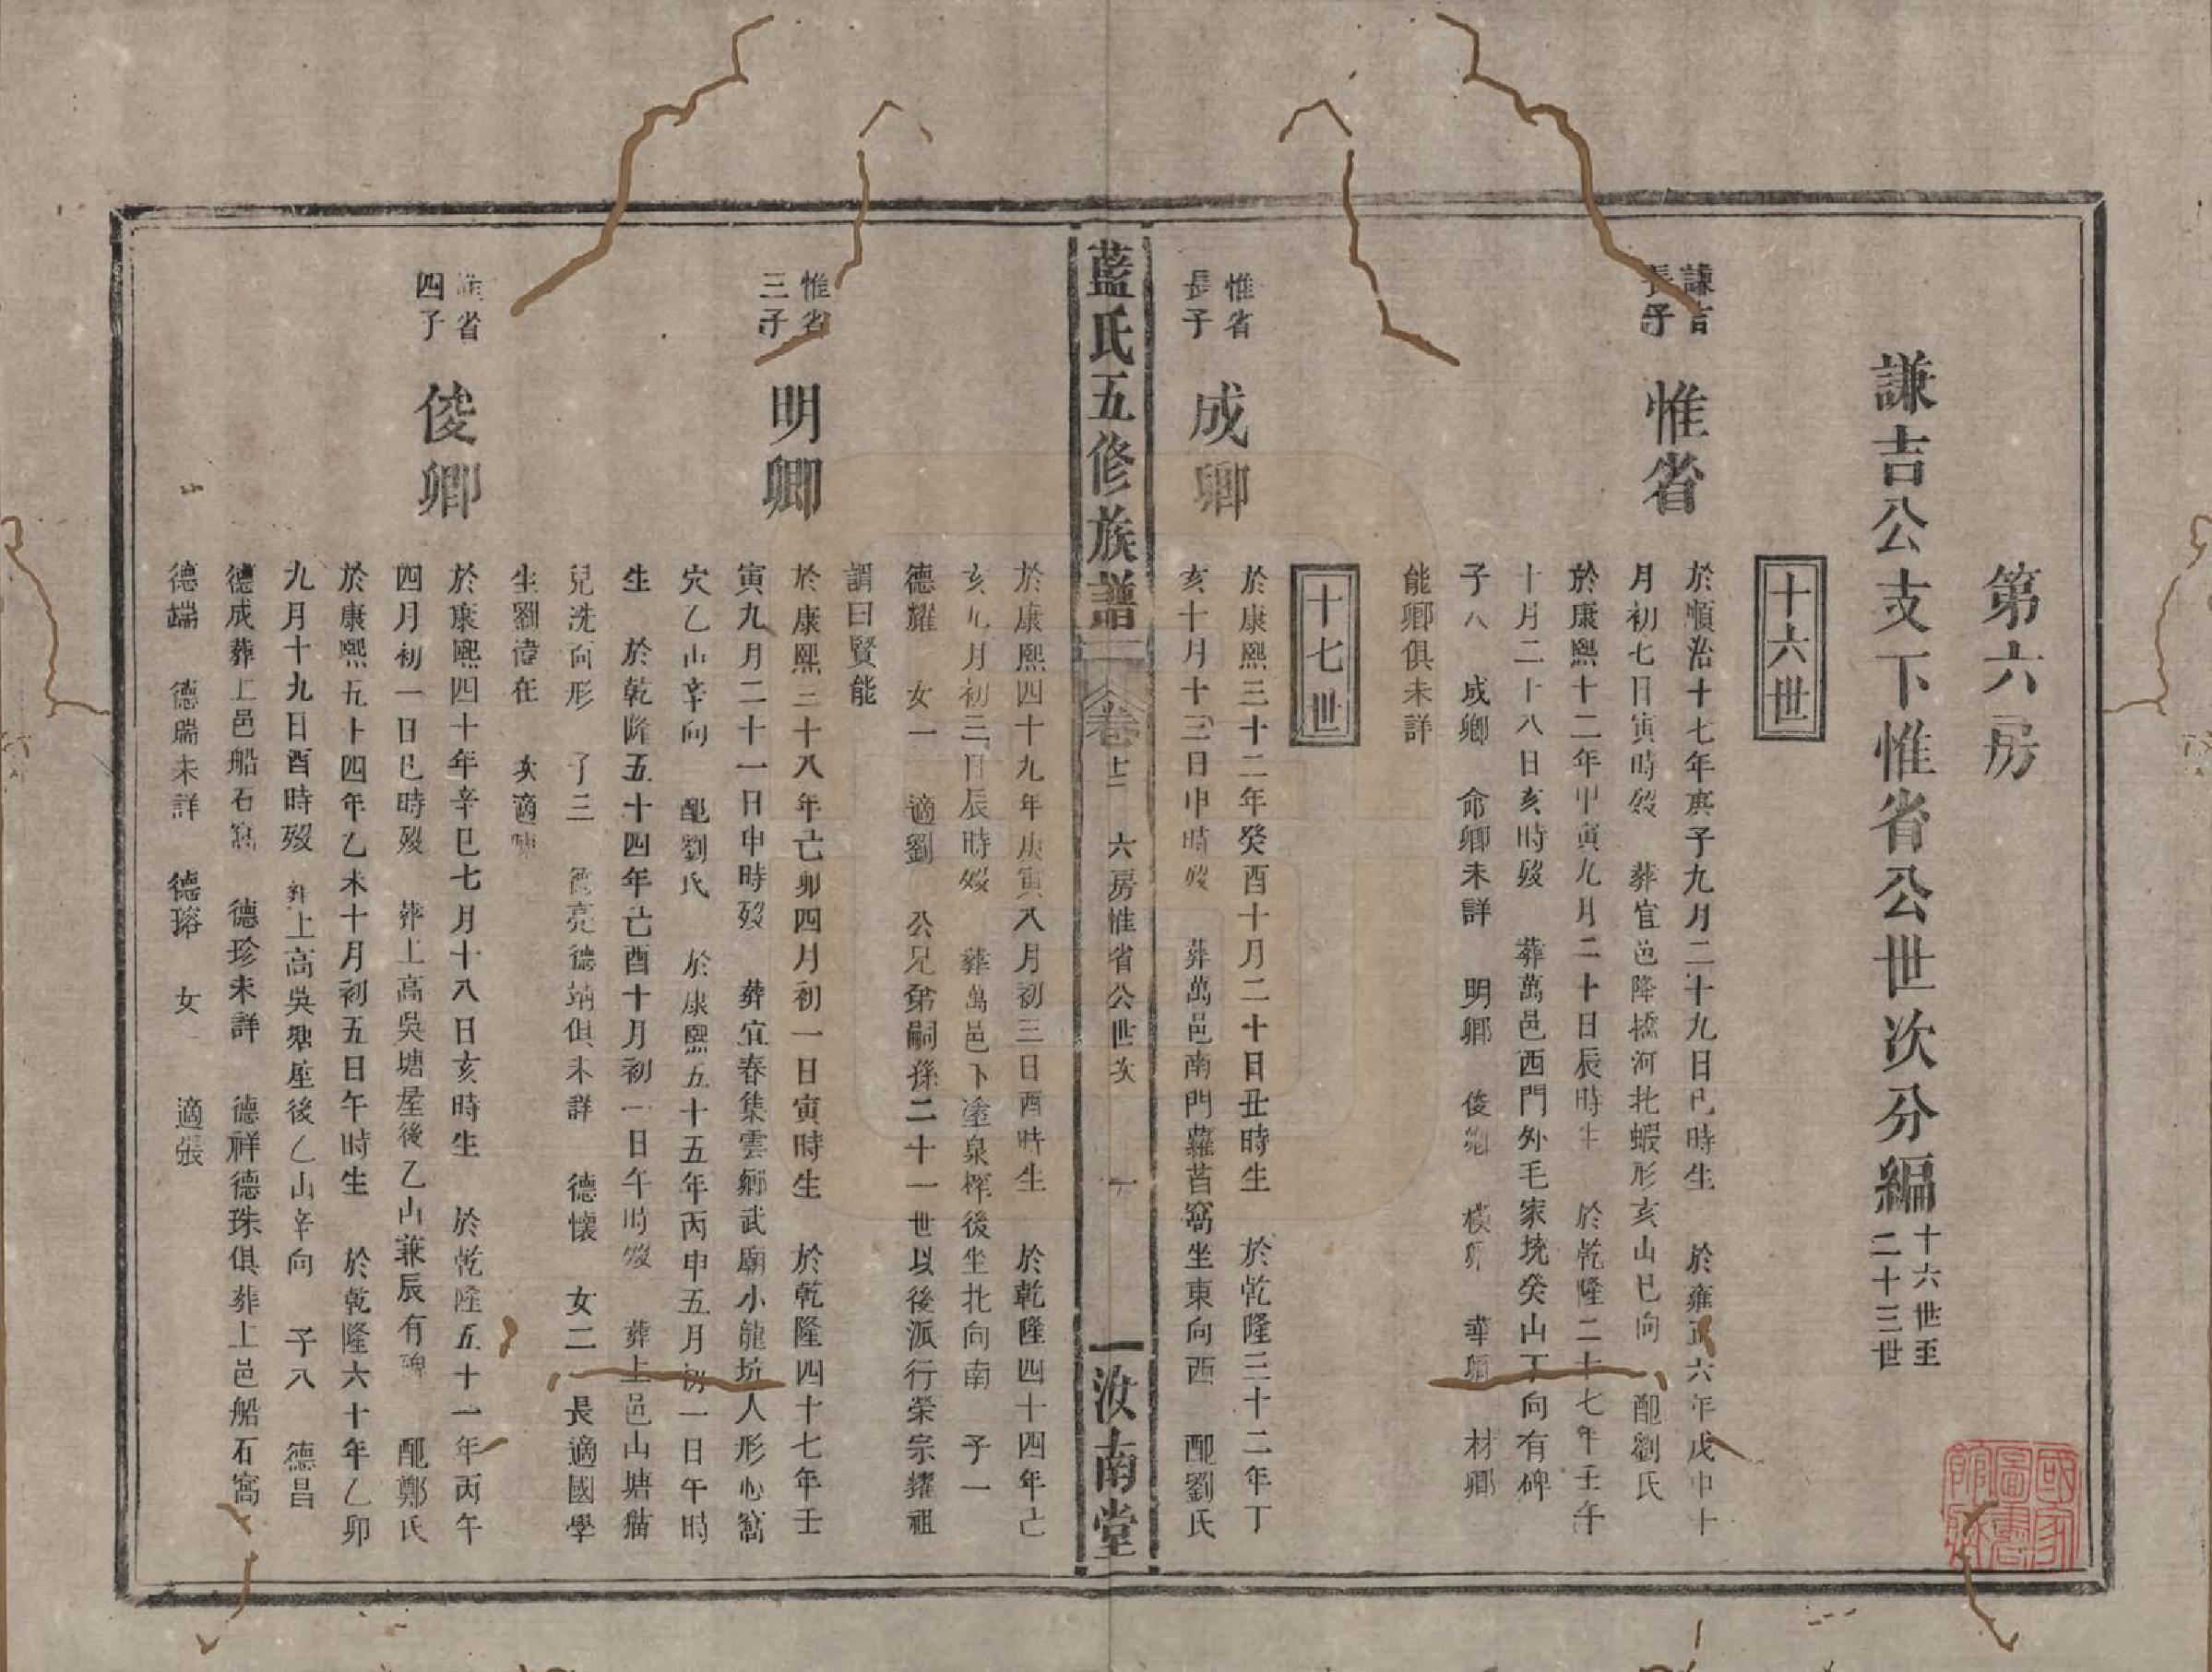 第六房
謙吉公支下惟省公世次分編
十六世至
二十三世
十六世
謙吉
長子
惟省
於順治十七年庚子九月二十九日巳時生 於雍正六年戊申十
月初七日寅時歿 葬宜邑降橋河北蝦形亥山巳向 配劉氏
於康熙十二年甲寅九月二十日辰時生 於乾隆二十七年壬午
十月二十八日亥時歿 葬萬邑西門外毛家垸癸山丁向有碑
子八 成卿 命卿未詳 明卿 俊卿 模卿 華卿 材卿
能卿俱未詳
十七世
惟省
長子
成卿
於康熙三十二年癸酉十月二十日丑時生 於乾隆三十二年丁
亥十月十三日申時歿 葬萬邑南門蘿苜窩坐東向西 配劉氏
藍氏五修族譜
卷十二 六房惟省公世次 一
汝南堂
於康熙四十九年庚寅八月初三日酉時生 於乾隆四十四年己
亥九月初三日辰時歿 葬萬邑下塗泉樿後坐北向南 子一
德耀 女一 適劉 公兄弟嗣孫二十一世以後派行榮宗耀祖
謂曰賢能
惟省
三子
明卿
於康熙三十八年己卯四月初一日寅時生 於乾隆四十七年壬
寅九月二十一日申時歿 葬宜春集雲鄉武廟小龍坑人形心窩
穴乙山辛向 配劉氏 於康熙五十五年丙申五月初一日午時
生 於乾隆五十四年己酉十月初一日午時歿 葬上邑山塘貓
兒洗面形 子三 德亮德靖俱未詳 德懷 女二 長適國學
生劉偉在 次適陳
惟省
四子
俊卿
於康熙四十年辛巳七月十八日亥時生 於乾隆五十一年丙午
四月初一日巳時歿 葬上高吳塘屋後乙山兼辰有碑 配鄭氏
於康熙五十四年乙未十月初五日午時生 於乾隆六十年乙卯
九月十九日酉時歿 葬上高吳塘屋後乙山辛向 子八 德昌
德成葬上邑船石窩 德珍未詳 德祥德珠俱葬上邑船石窩
德端 德瑞未詳 德瑢 女一 適張